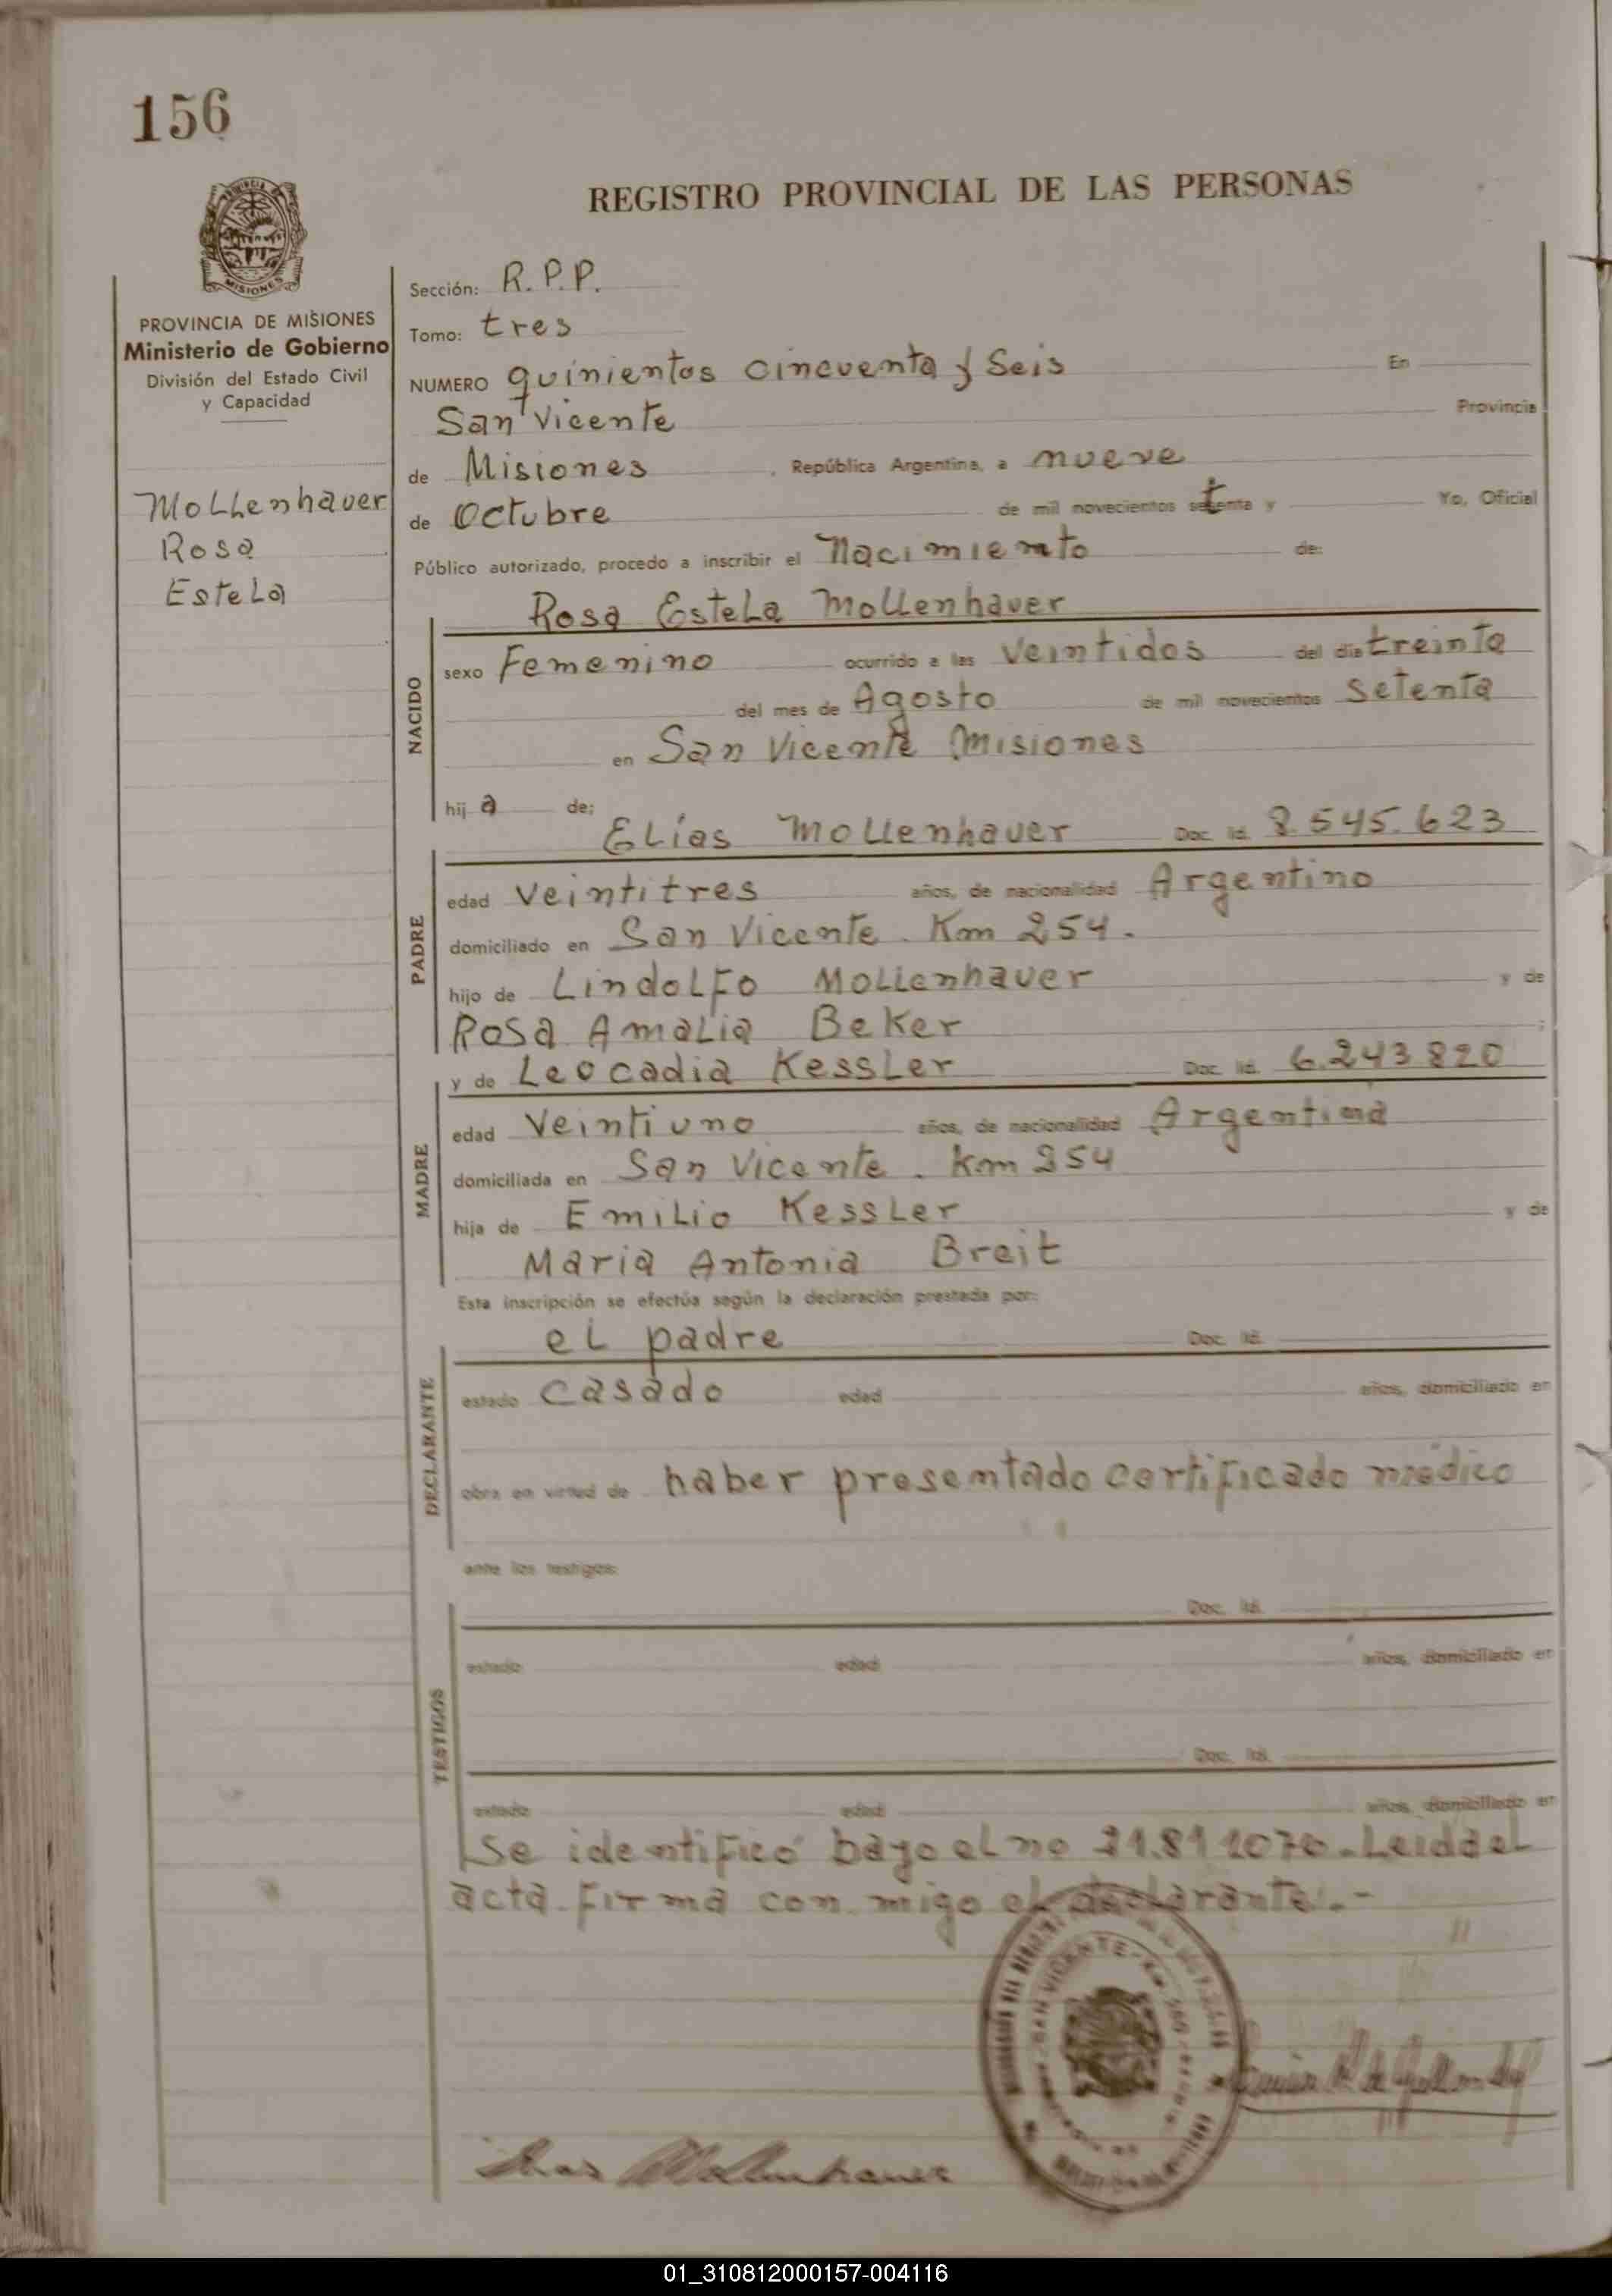 156
REGISTRO PROVINCIAL DE LAS PERSONAS
MISIONES
PROVINCIA DE MISIONES
Ministerio de Gobierno
División del Estado Civil
y Capacidad
Mollenhauer
Rosa
Estela
Sección: R.P.P.
Tomo: tres
NUMERO quinientos cincuenta y seis En
San Vicente Provincia
de Misiones, República Argentina, a nueve
de Octubre de mil novecientos setenta y Yo, Oficial
Público autorizado, procedo a inscribir el Nacimiento de:
NACIDO
Rosa Estela Mollenhauer
sexo Femenino ocurrido a las veintidos del día treinta
del mes de Agosto de mil novecientos setenta
en San Vicente Misiones
hij a de:
PADRE
Elías Mollenhauer Doc. Id. 8.545.623
edad veintitres años, de nacionalidad Argentino
domiciliado en San Vicente. Km 254.
hijo de Lindolfo Mollenhauer y de
Rosa Amalia Beker ;
MADRE
y de Leocadia Kessler Doc. Id. 6.243.820
edad Veintiuno años, de nacionalidad Argentina
domiciliada en San Vicente. Km 254
hija de Emilio Kessler y de
Maria Antonia Breit
Esta inscripción se efectúa según la declaración prestada por:
DECLARANTE
el padre Doc. Id.
estado casado edad años, domiciliado en
obra en virtud de haber presentado certificado médico
ante los testigos:
TESTIGOS
Doc. Id.
estado edad años, domiciliado en
Doc. Id.
estado edad años, domiciliado en
Se identificó bajo el no 21.811070. Leida el
acta. firma con migo el declarante.-
SAN VICENTE
Elias Mollenhauer
01_310812000157-004116